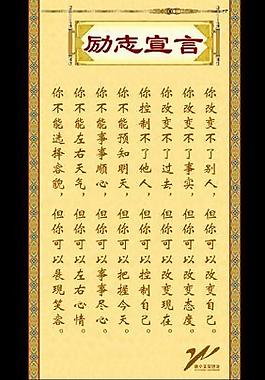 励志宣言
你改变不了别人，但你可以改变自己。
你改变不了事实，但你可以改变态度。
你改变不了过去，但你可以改变现在。
你控制不了他人，但你可以控制自己。
你不能预知明天，但你可以把握今天。
你不能事事顺心，但你可以事事尽心。
你不能左右天气，但你可以左右心情。
你不能选择容貌，但你可以展现笑容。